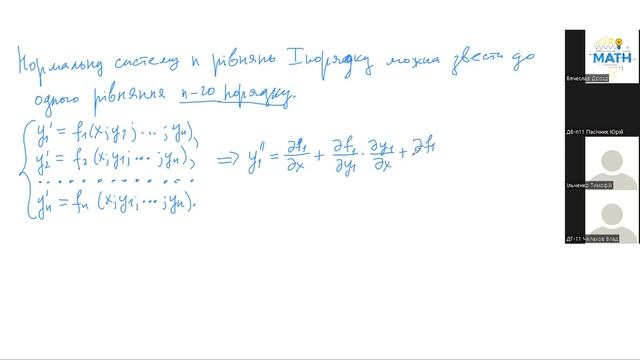 Нормальну систему n рівнянь I порядку можна звести до
одного рівняння n-го порядку.
y₁' = f₁(x; y₁; ...; yₙ),
y₂' = f₂(x; y₁; ...; yₙ),
..............
yₙ' = fₙ(x; y₁; ...; yₙ).
⇒ y₁'' = ∂f₁/∂x + ∂f₁/∂y₁ · ∂y₁/∂x + ∂f₁
MATH
Вячеслав Дрозд
ДВ-п11 Пасічник Юрій
Ільченко Тимофій
ДГ-11 Чалахов Влад